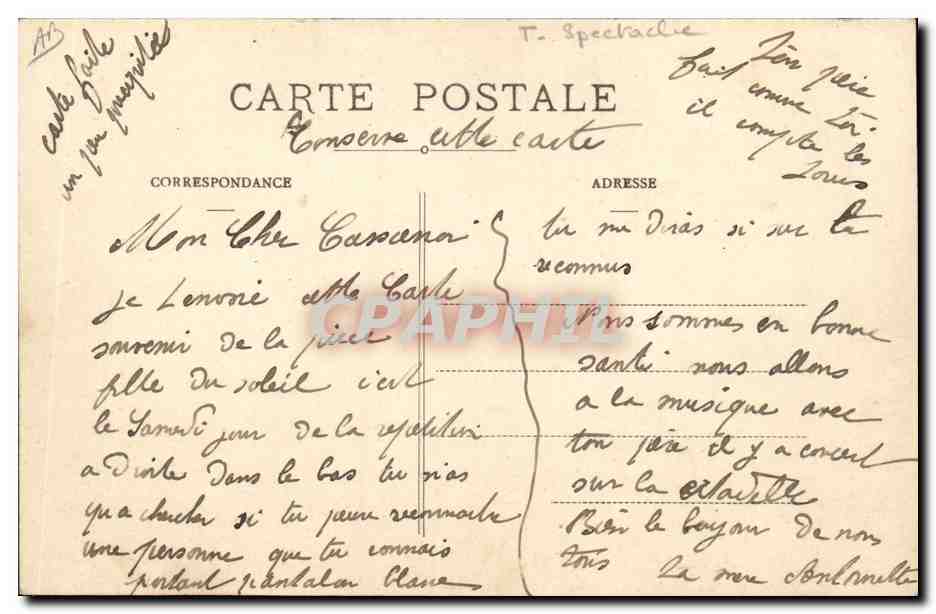 AB
T- Spectacle
carte faite
un peu
CARTE POSTALE
Conserve cette carte
Ton père
fait comme toi
il compte les
Jours
CORRESPONDANCE
ADRESSE
Mon Cher
Je t'envoie cette Carte
souvenir de la piece
fille du soleil c'est
le Samedi jour de la repetition
a Droite dans le bas tu n'as
qu a chercher si tu peux reconnaitre
une personne que tu connais
portant pantalon blanc
tu me diras si sur la
reconnus
Nous sommes en bonne
santé nous allons
a la musique avec
ton père il y a concert
sur la citadelle
Bien le bonjour de nous
tous
Ta mere Antoinette
CPAPHIL